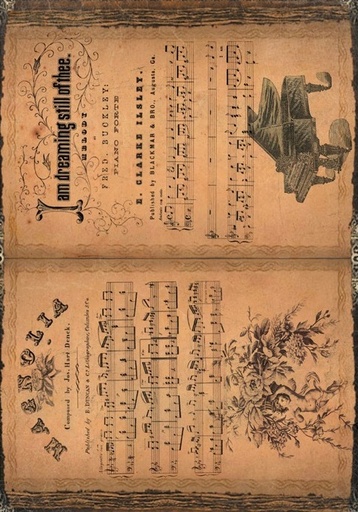 I am dreaming still of thee.
MELODY
FRED. BUCKLEY;
PIANO FORTE
E. CLARKE ILSLEY.
Published by BLACKMAR & BRO., Augusta, Ga.
Composed by Jas. Hard Denck.
Published by B. DUNCAN & Co. Lithographers, Columbia S.C.